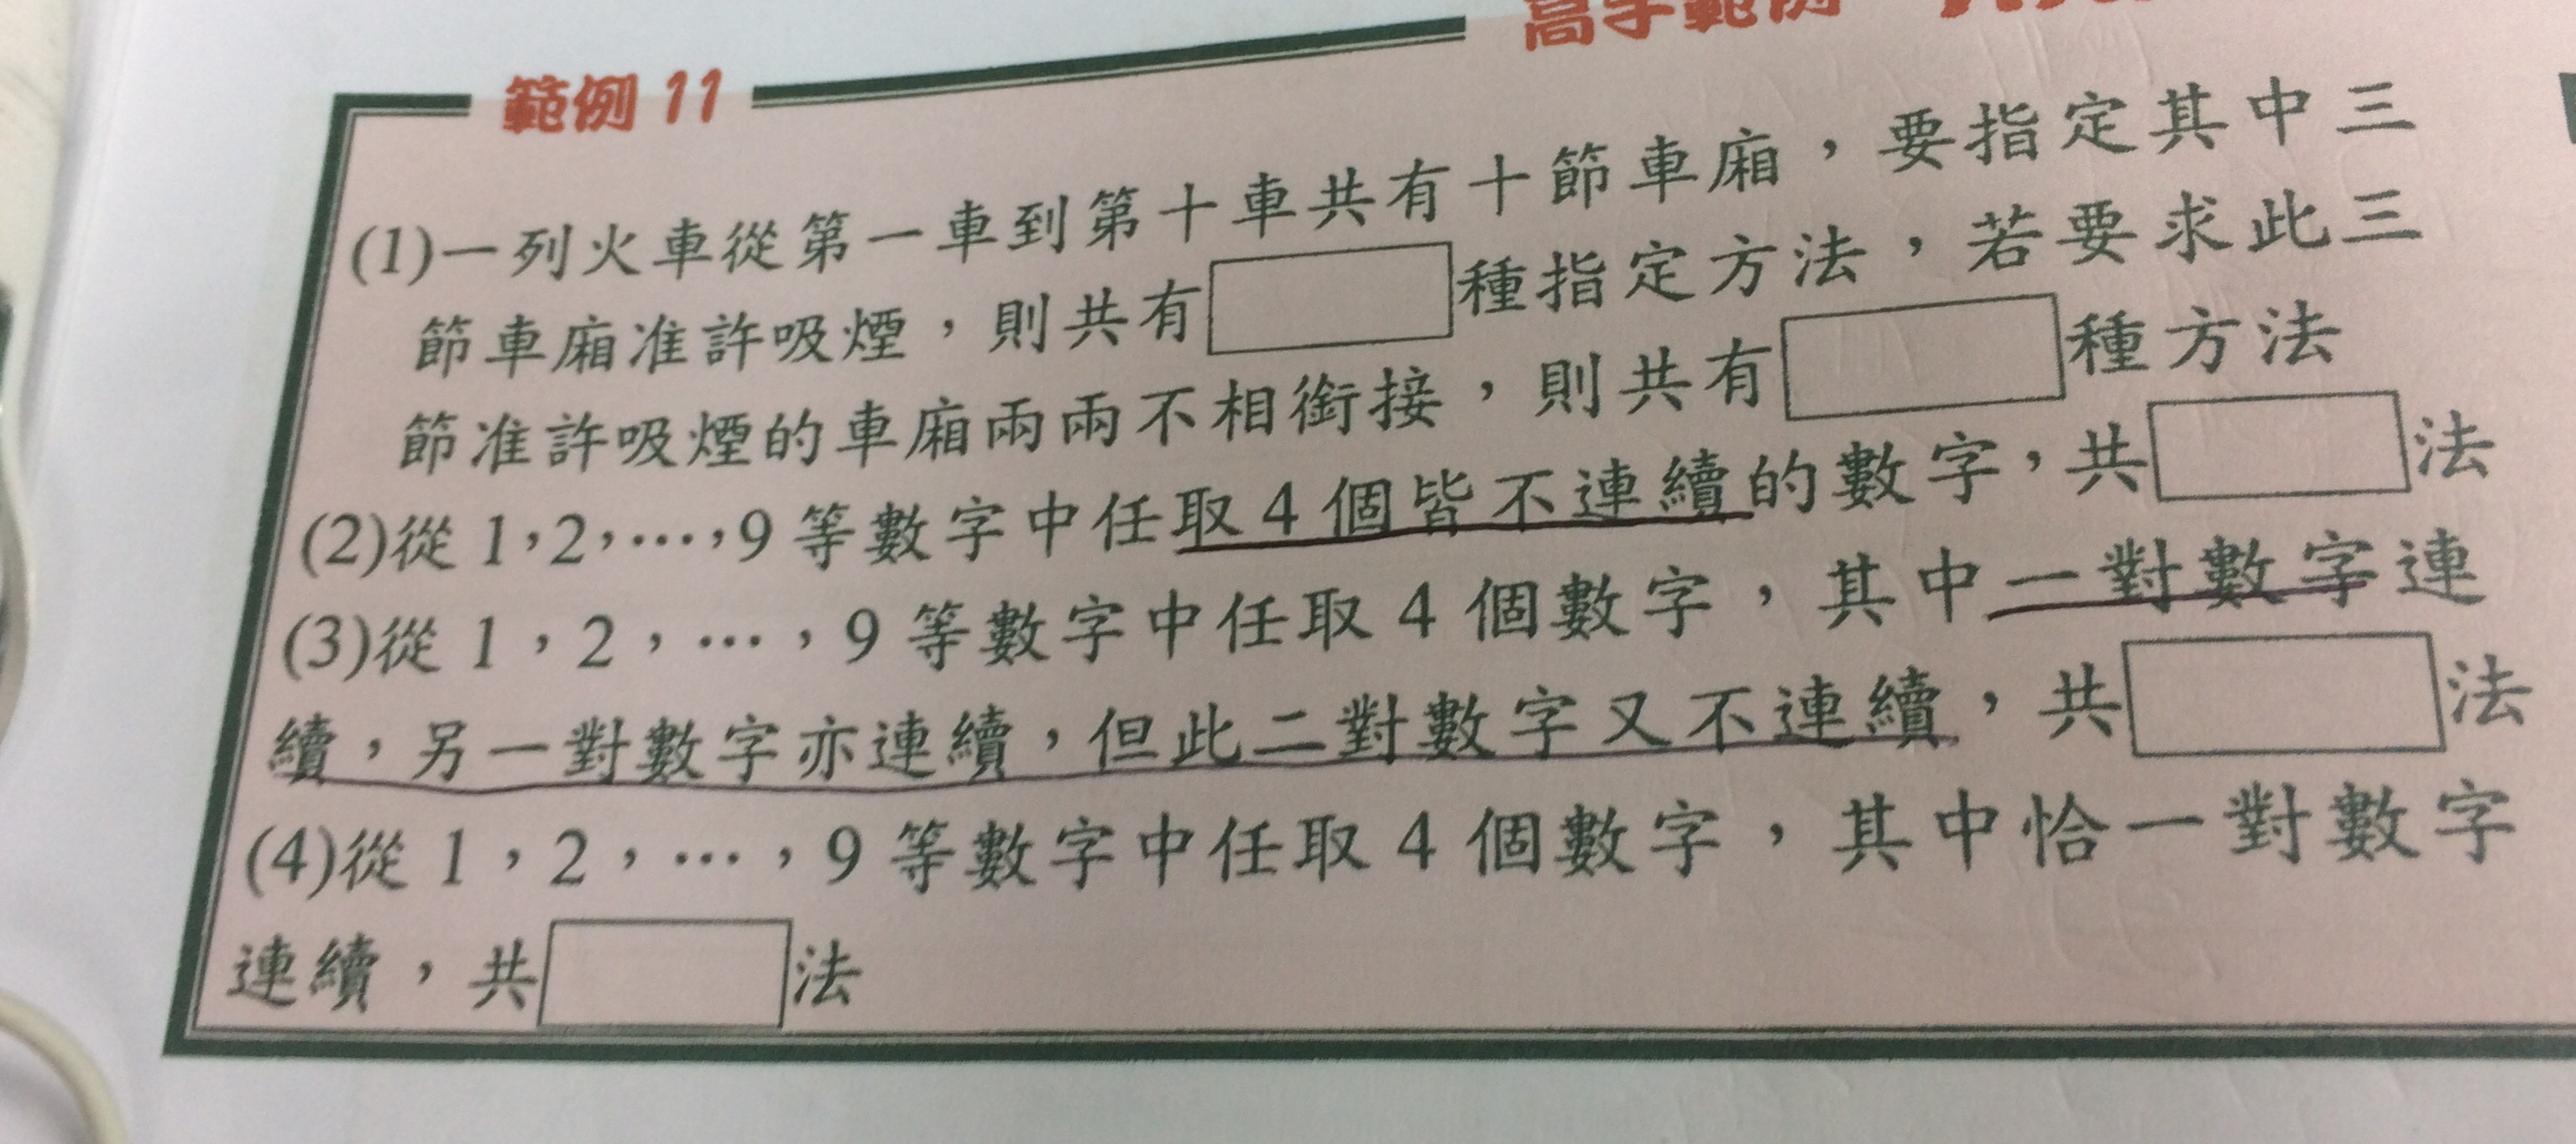 高手範例
範例 11
(1)一列火車從第一車到第十車共有十節車廂,要指定其中三
節車廂准許吸煙,則共有 種指定方法,若要求此三
節准許吸煙的車廂兩兩不相銜接,則共有 種方法
(2)從 1,2,…,9 等數字中任取 4 個皆不連續的數字,共 法
(3)從 1,2,…,9 等數字中任取 4 個數字,其中一對數字連
續,另一對數字亦連續,但此二對數字又不連續,共 法
(4)從 1,2,…,9 等數字中任取 4 個數字,其中恰一對數字
連續,共 法